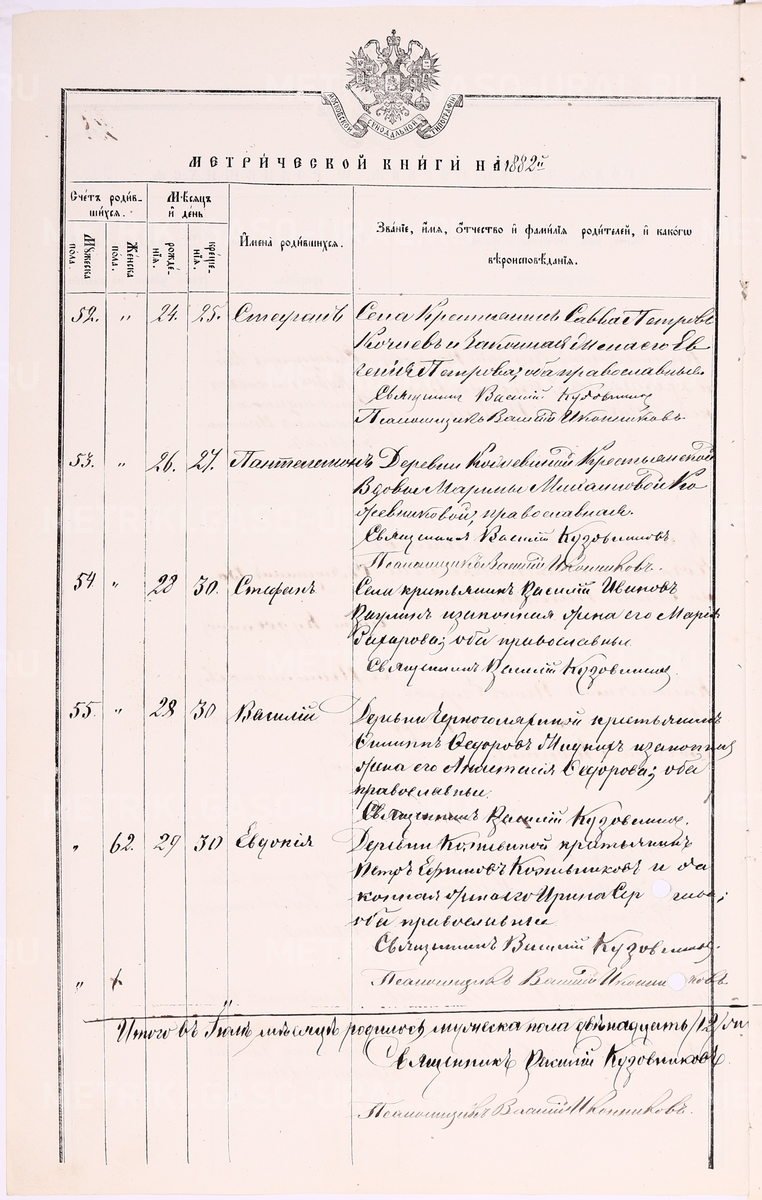 МОСКОВСКОЙ СѴНОДАЛЬНОЙ ТИПОГРАФІИ
МЕТРИЧЕСКОЙ КНИГИ НА 1882й
Счетъ родившихся.
Мѣсяцъ и день
Имена родившихся.
Званіе, имя, отчество и фамилія родителей, и какого вѣроисповѣданія.
Мужеска пола.
Женска пола.
рожденія.
крещенія.
52. " 24. 25. Стефанъ Села Крестьянинъ Савва Петровъ
Кочневъ и Законная Жена его Ев
генія Петрова; оба православные.
Священникъ Василій Кузовников
Псаломщикъ Василій Иконниковъ.
53. " 26. 27. Пантелеимонъ Деревни Крестьянской
Вдовы Марины Михаиловой Ко
жевниковой, православная.
Священникъ Василій Кузовниковъ.
Псаломщикъ Василій Иконниковъ.
54 " 28 30. Стефанъ Села крестьянинъ Василій Ивановъ
и законная жена его Марія
Захарова; оба православные
Священникъ Василій Кузовников.
55. " 28 30 Василій Деревни крестьянинъ
Филиппъ Ѳедоровъ и законная
жена его Анастасія Ѳедорова; оба
православные.
Священникъ Василій Кузовников.
" 62. 29 30 Евдокія Деревни крестьянинъ
Петръ Ефимовъ Котельниковъ и за
конная жена его Ирина Сер гѣева;
оба православные
Священникъ Василій Кузовников.
" "
Псаломщикъ Василій Иконниковъ.
Итого въ Іюлѣ мѣсяцѣ родилось мужеска пола двѣнадцать /12/
Священникъ Василій Кузовниковъ.
Псаломщикъ Василій Иконниковъ.